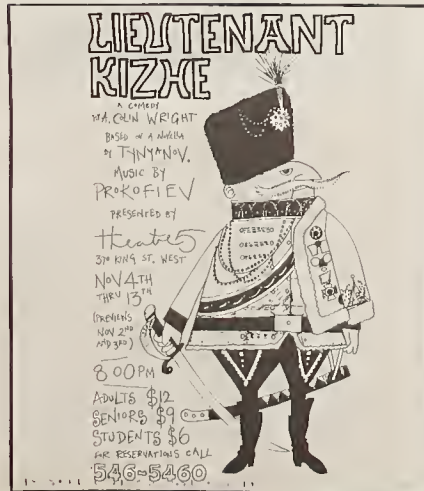 LIEUTENANT
KIZHE
A COMEDY
BY A. COLIN WRIGHT
BASED ON A NOVELLA
BY TYNYANOV.
MUSIC BY
PROKOFIEV
PRESENTED BY
theatre 5
370 KING ST. WEST
NOV 4TH
THRU 13TH
(PREVIEWS
NOV 2ND
AND 3RD)
8 00 PM
ADULTS $12
SENIORS $9
STUDENTS $6
FOR RESERVATIONS CALL
546-5460